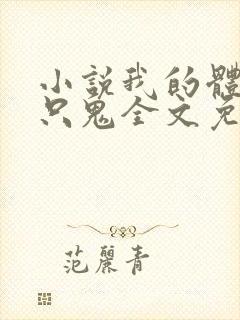 小說我的體
只鬼全文免
范麗青